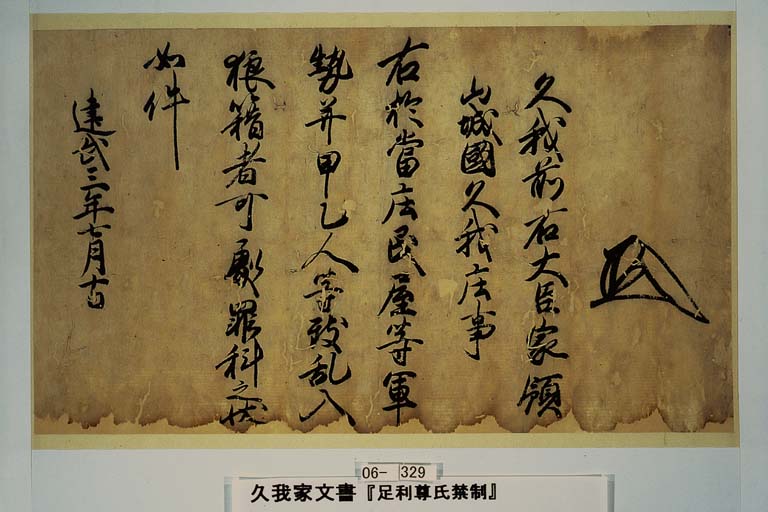 久我前右大臣家領
山城國久我庄事
右於當庄民屋等軍
勢并甲乙人等致乱入
狼籍者可處罪科之状
如件
建武三年七月十日
06-329
久我家文書『足利尊氏禁制』